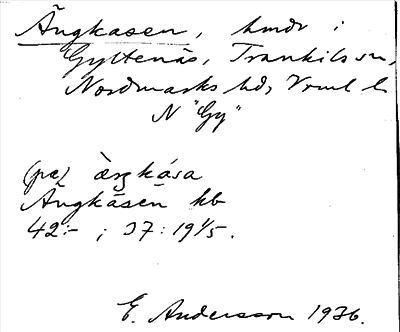 Ängkasen, hmdr i
Gyltenäs, Trankils sn,
Nordmarks hd, Vrml l.
N "Gy"
(pa) 
Ängkåsen kb
42:- ; 37: 19 1/5.
E. Andersson 1936.